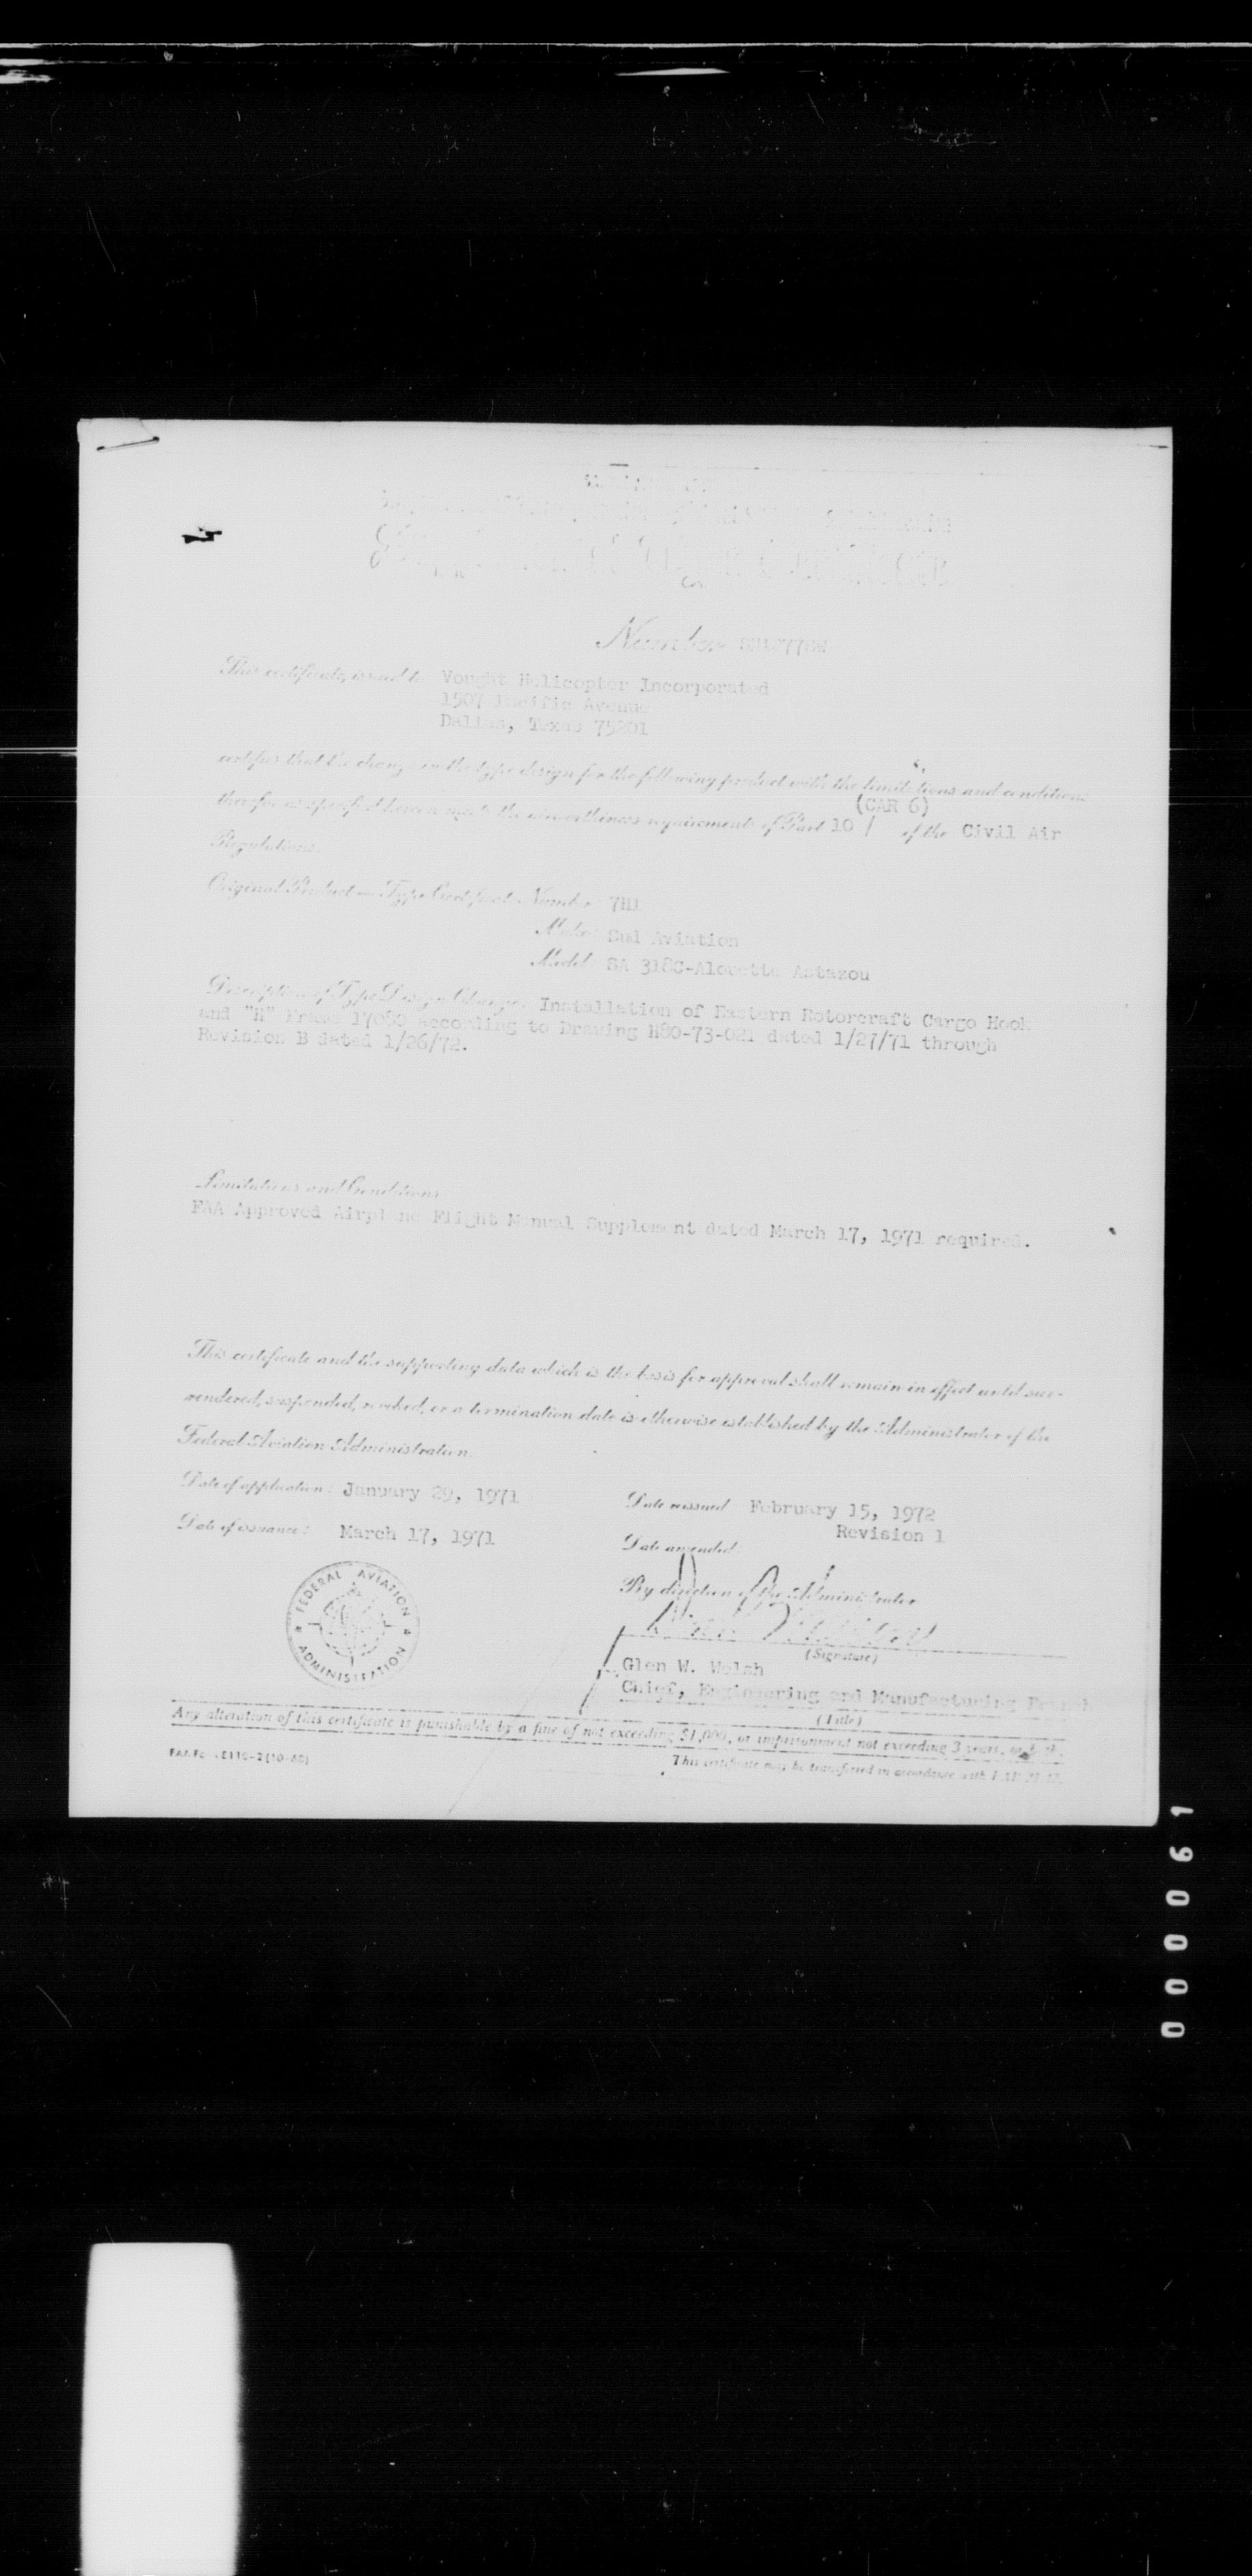 Number
This certificate, issued to Vought Helicopter Incorporated
1507 Pacific Avenue
Dallas, Texas 75201
certifies that the change in the type design for the following product with the limitations and conditions
(CAR 6)
therefor as specified hereon meets the airworthiness requirements of Part 10 / of the Civil Air
Regulations.
Original Product — Type Certificate Number 7H1
Make: Sud Aviation
Model: SA 318C-Alouette Astazou
Description of Type Design Change: Installation of Eastern Rotorcraft Cargo Hook
and "H" Frame according to Drawing H80-73-021 dated 1/27/71 through
Revision B dated 1/26/72.
Limitations and Conditions
FAA Approved Airplane Flight Manual Supplement dated March 17, 1971 required.
This certificate and the supporting data which is the basis for approval shall remain in effect until sur-
rendered, suspended, revoked, or a termination date is otherwise established by the Administrator of the
Federal Aviation Administration.
Date of application: January 29, 1971
Date reissued February 15, 1972
Date of issuance: March 17, 1971
Revision 1
Date amended:
By direction of the Administrator
FEDERAL AVIATION ADMINISTRATION
(Signature)
Glen W. Welsh
Chief, Engineering and Manufacturing Branch
(Title)
Any alteration of this certificate is punishable by a fine of not exceeding $1,000, or imprisonment not exceeding 3 years, or both.
This certificate may be transferred in accordance with
000061